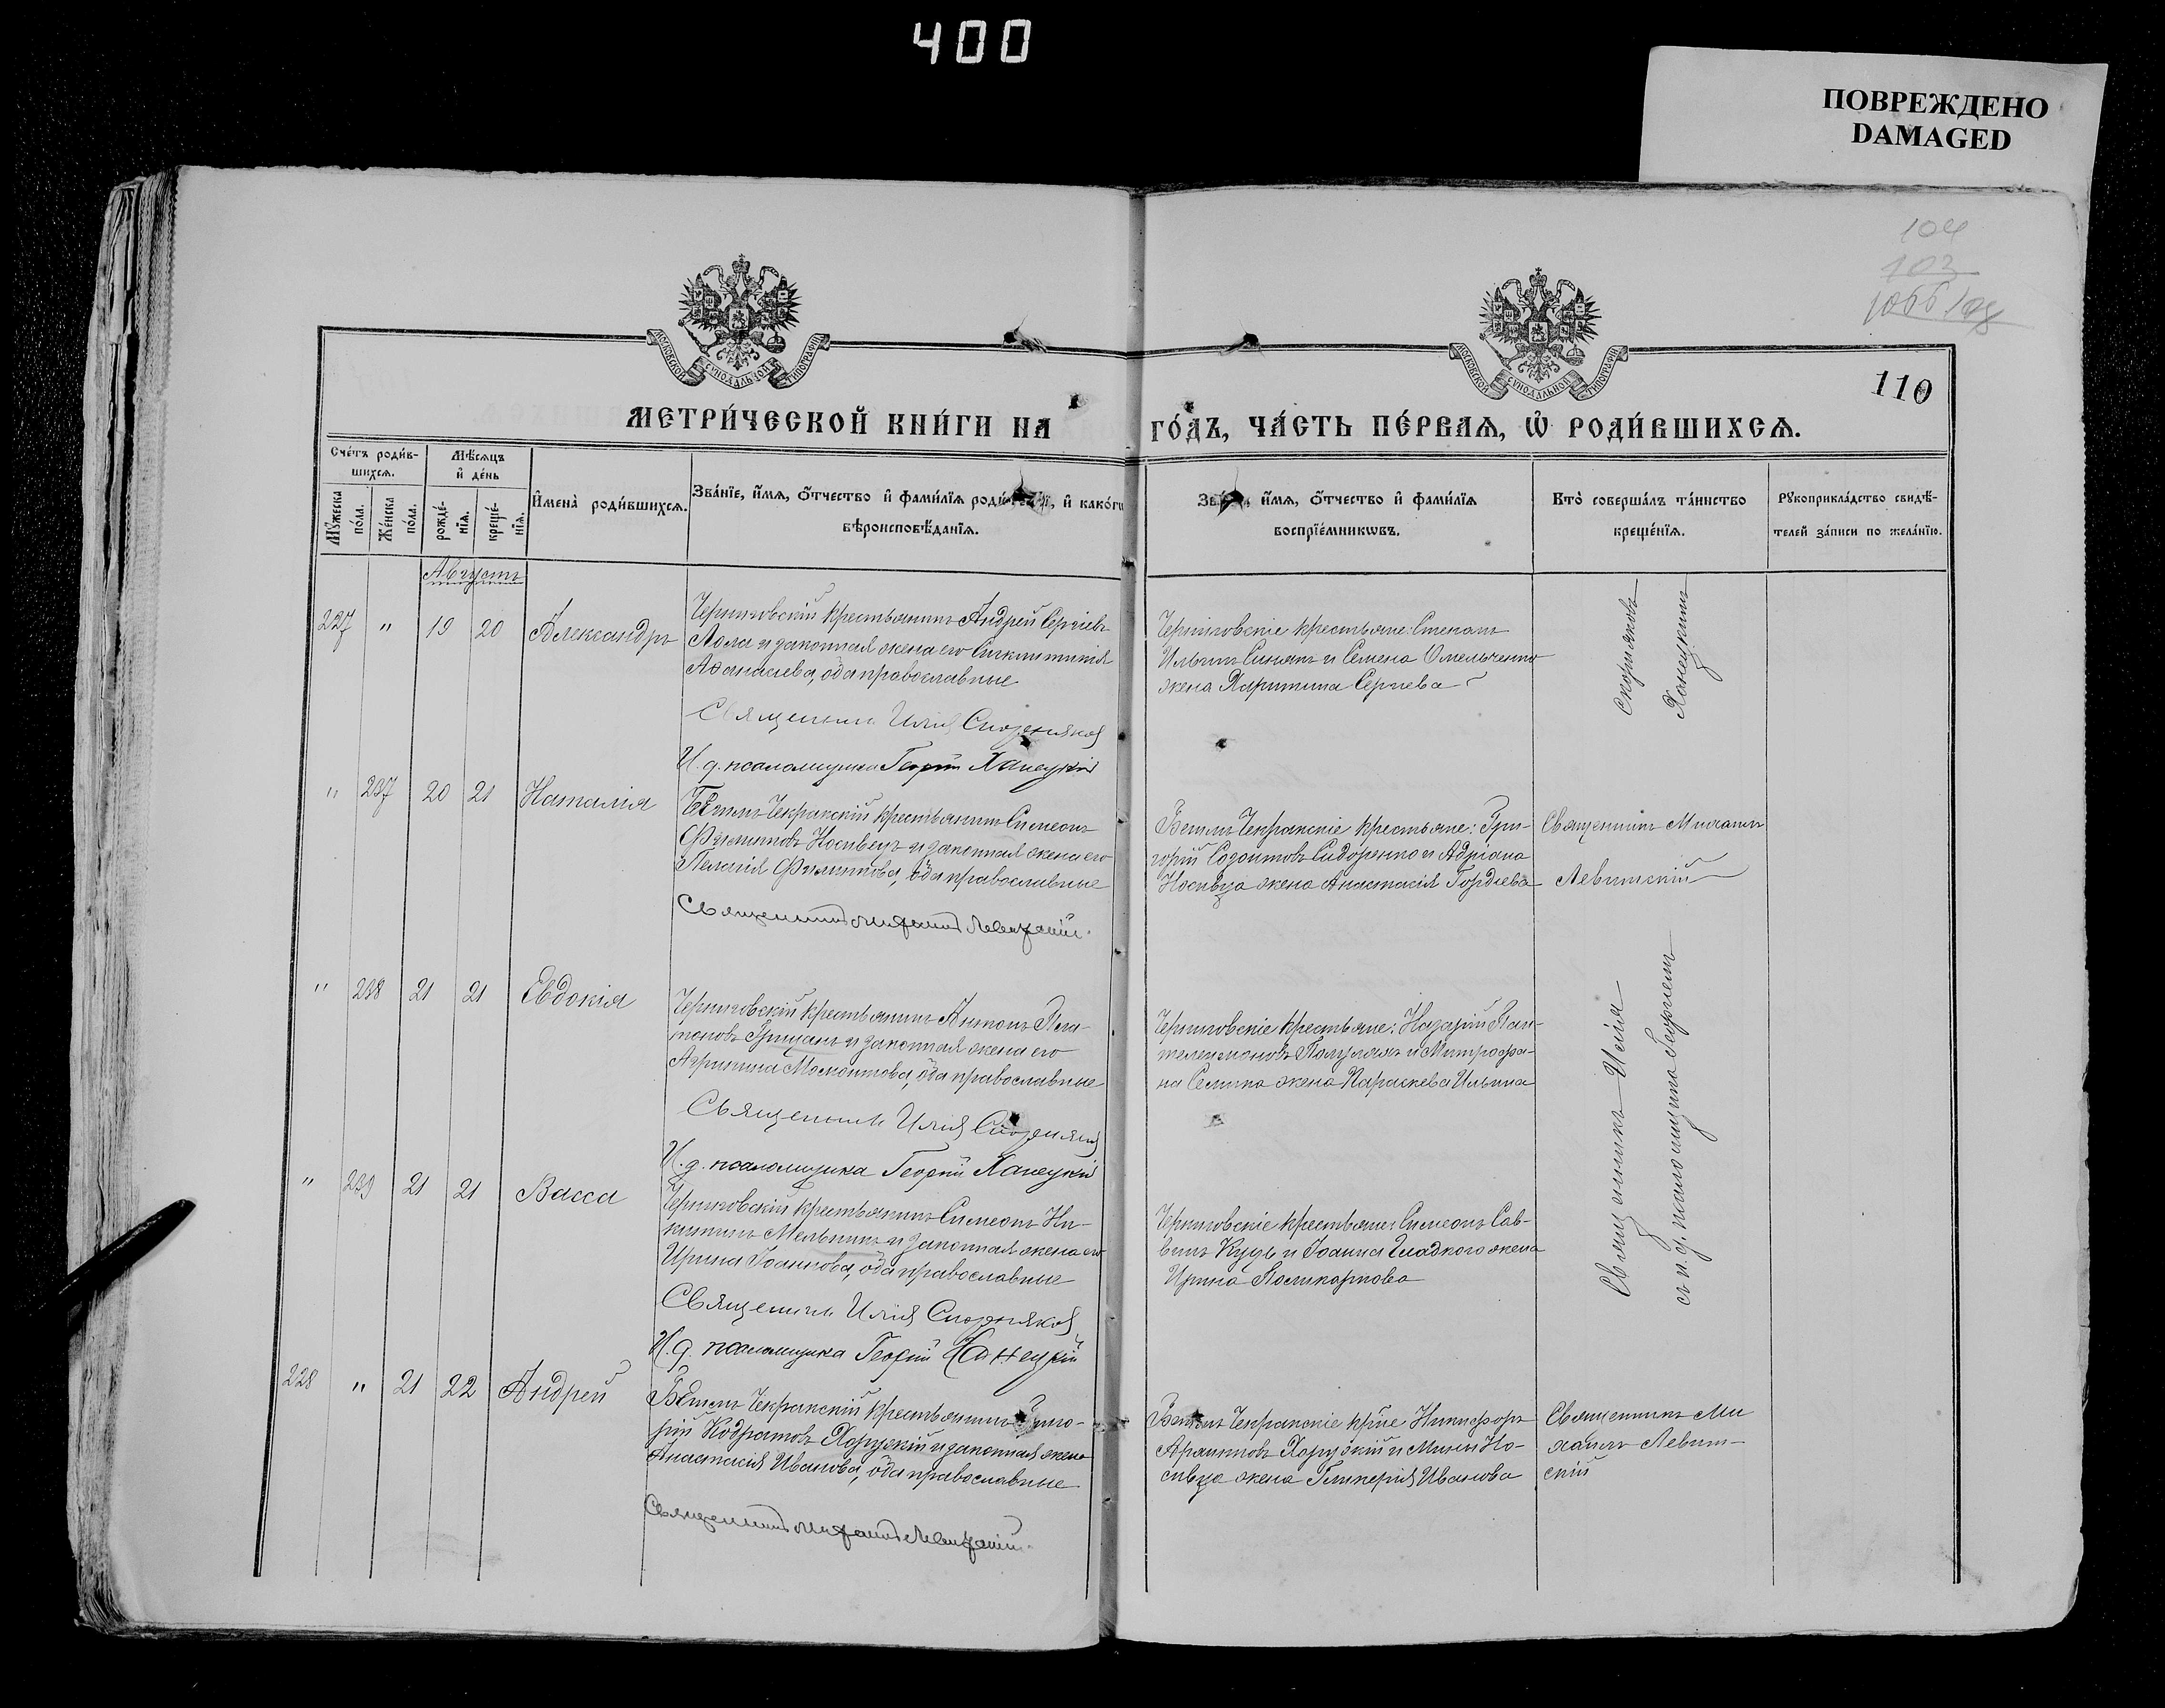 400
ПОВРЕЖДЕНО
DAMAGED
104
103
110
МОСКОВСКОЙ СУНОДАЛЬНОЙ ТИПОГРАФІИ
МОСКОВСКОЙ СУНОДАЛЬНОЙ ТИПОГРАФІИ
МЕТРИ́ЧЕСКОЙ КНИ́ГИ НА
ГО́ДЪ, ЧА́СТЬ ПЕ́РВАѦ, Ѡ҆ РОДИ́ВШИХСѦ.
Сче́тъ роди́в-
шихсѧ.
Мꙋ́жеска
по́ла.
Же́нска
по́ла.
Мѣ́сѧцъ
и҆ де́нь
рожде́-
нїѧ.
креще́-
нїѧ.
И҆мена̀ роди́вшихсѧ.
Зва́нїе, и҆́мѧ, ѻ҆́тчество и҆ фами́лїѧ роди́телей, и҆ како́гѡ
вѣроисповѣ́данїѧ.
Зва́нїе, и҆́мѧ, ѻ҆́тчество и҆ фами́лїѧ
воспрїе́мникѡвъ.
Кто̀ соверша́лъ та́инство
креще́нїѧ.
Рꙋкоприкла́дство свидѣ́-
телей за́писи по жела́нїю.
Августъ
227 " 19 20 Александръ
Черниговскій крестьянинъ Андрей Сергіевъ
и законная жена его Синклитикія
Аѳанасіева, оба православные
Священникъ Илія Скорняковъ
И. д. псаломщика Георгій Ханецкій
Черниговскіе крестьяне: Степанъ
Ильинъ и Семена Омельченко
жена Харитина Сергіева
Скорняковъ
Ханецкимъ
" 237 20 21 Наталія
Бешпъ Чекракскій крестьянинъ Симеонъ
Филиповъ Носивецъ и законная жена его
Пелагія Филипова, оба православные
Священникъ Михаилъ Левитскій.
Чекракскіе крестьяне: Гри-
горій Сидоренко и Адріана
Носивца жена Анастасія Гордіева
Священникъ Михаилъ
Левитскій
" 238 21 21 Евдокія
Черниговскій крестьянинъ Антонъ Пла-
тоновъ Грицанъ и законная жена его
Агрипина оба православные
Священникъ Илія Скорняковъ
И. д. псаломщика Георгій Ханецкій
Черниговскіе крестьяне: Назарій Пан-
телеимоновъ и Митрофа-
на жена Параскева Ильина
Священникъ Илія
съ и. д. псаломщика Георгіемъ
" 239 21 21 Васса
Черниговскій крестьянинъ Симеонъ Ни-
китинъ Мельникъ и законная жена его
Ирина Іоаннова, оба православные
Священникъ Илія Скорняковъ
И. д. псаломщика Георгій Ханецкій
Черниговскіе крестьяне: Симеонъ Сав-
винъ Куцъ и Іоанна Гладкого жена
Ирина Поликарпова
228 " 21 22 Андрей
Чекракскій крестьянинъ Григо-
рій Кодратовъ Харускій и законная жена
Анастасія Иванова, оба православные
Священникъ Михаилъ Левитскій.
Чекракскіе кр-не Никифоръ
Харускій и Мины Но-
сивца жена Гликерія Иванова
Священникъ Ми
хаилъ Левит-
скій